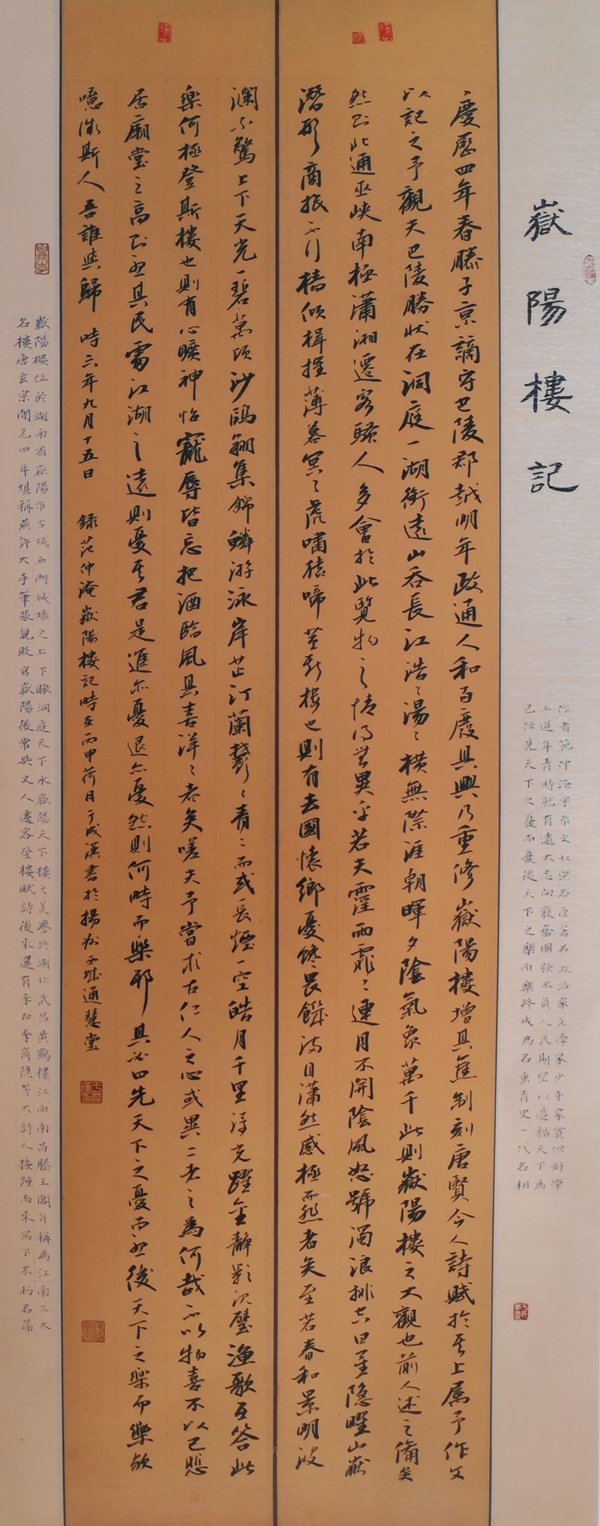 嶽陽樓記
作者範仲淹字希文北宋名臣著名政治家文學家少年家貧但好學
上進年青時就有遠大志向發奮圖強不負人民期望以造福天下為
己任先天下之憂而憂後天下之樂而樂終成為名垂青史一代名相
慶歷四年春滕子京謫守巴陵郡越明年政通人和百廢具興乃重修嶽陽樓增其舊制刻唐賢今人詩賦於其上屬予作文
以記之予觀夫巴陵勝狀在洞庭一湖銜遠山吞長江浩〻湯〻橫無際涯朝暉夕陰氣象萬千此則嶽陽樓之大觀也前人述之備矣
然則北通巫峽南極瀟湘遷客騷人多會於此覽物之情得無異乎若夫霪雨霏〻連月不開陰風怒號濁浪排空日星隱曜山嶽
潛形商旅不行檣傾楫摧薄暮冥〻虎嘯猿啼登斯樓也則有去國懷鄉憂讒畏譏滿目蕭然感極而悲者矣至若春和景明波
瀾不驚上下天光一碧萬頃沙鷗翔集錦鱗游泳岸芷汀蘭鬱〻青〻而或長煙一空皓月千里浮光躍金靜影沉璧漁歌互答此
樂何極登斯樓也則有心曠神怡寵辱皆忘把酒臨風其喜洋〻者矣嗟夫予嘗求古仁人之心或異二者之為何哉不以物喜不以己悲
居廟堂之高則憂其民處江湖之遠則憂其君是進亦憂退亦憂然則何時而樂耶其必曰先天下之憂而憂後天下之樂而樂歟
噫微斯人吾誰與歸 時六年九月十五日 錄范仲淹嶽陽樓記時在丙申荷月于成漢書於揚州 城通慧堂
嶽陽樓位於湖南省嶽陽市古城西門城墻之上下瞰洞庭天下水嶽陽天下樓之美譽與湖北武昌黃鶴樓江西南昌滕王閣並稱為江南三大
名樓唐玄宗開元四年堪稱燕許大手筆張說貶官嶽陽後常與文人遷客登樓賦詩後來還有李白李商隱等大詩人接踵而來寫下不朽名篇